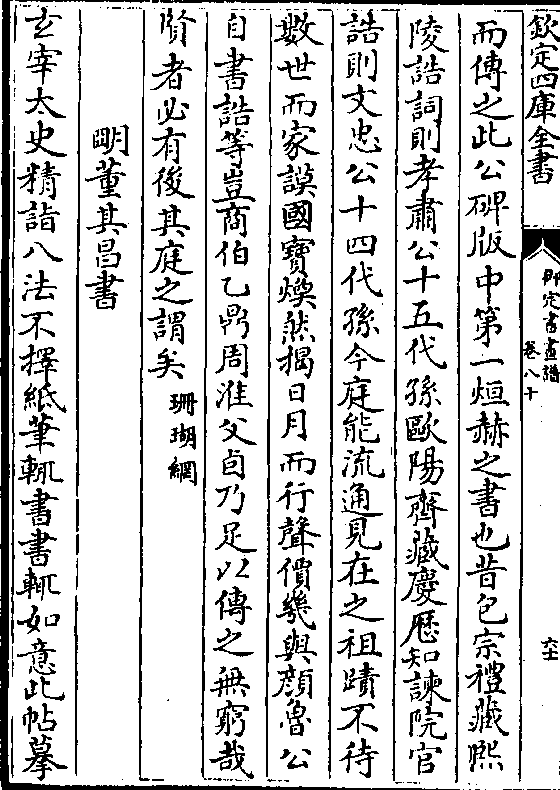 欽定四庫全書
御定書畫譜
卷八十
六十
而傳之此公碑版中第一烜赫之書也昔包宗禮藏熙
陵誥詞則孝肅公十五代孫歐陽齊藏慶厯知諫院官
誥則文忠公十四代孫今庭能流通見在之祖蹟不待
數世而家謨國寳煥然揭日月而行聲價幾與顔魯公
自書誥等豈商伯乙鼎周淮父卣乃足以傳之無窮哉
賢者必有後其庭之謂矣
珊瑚網
明董其昌書
玄宰太史精詣八法不擇紙筆輒書書輒如意此帖摹